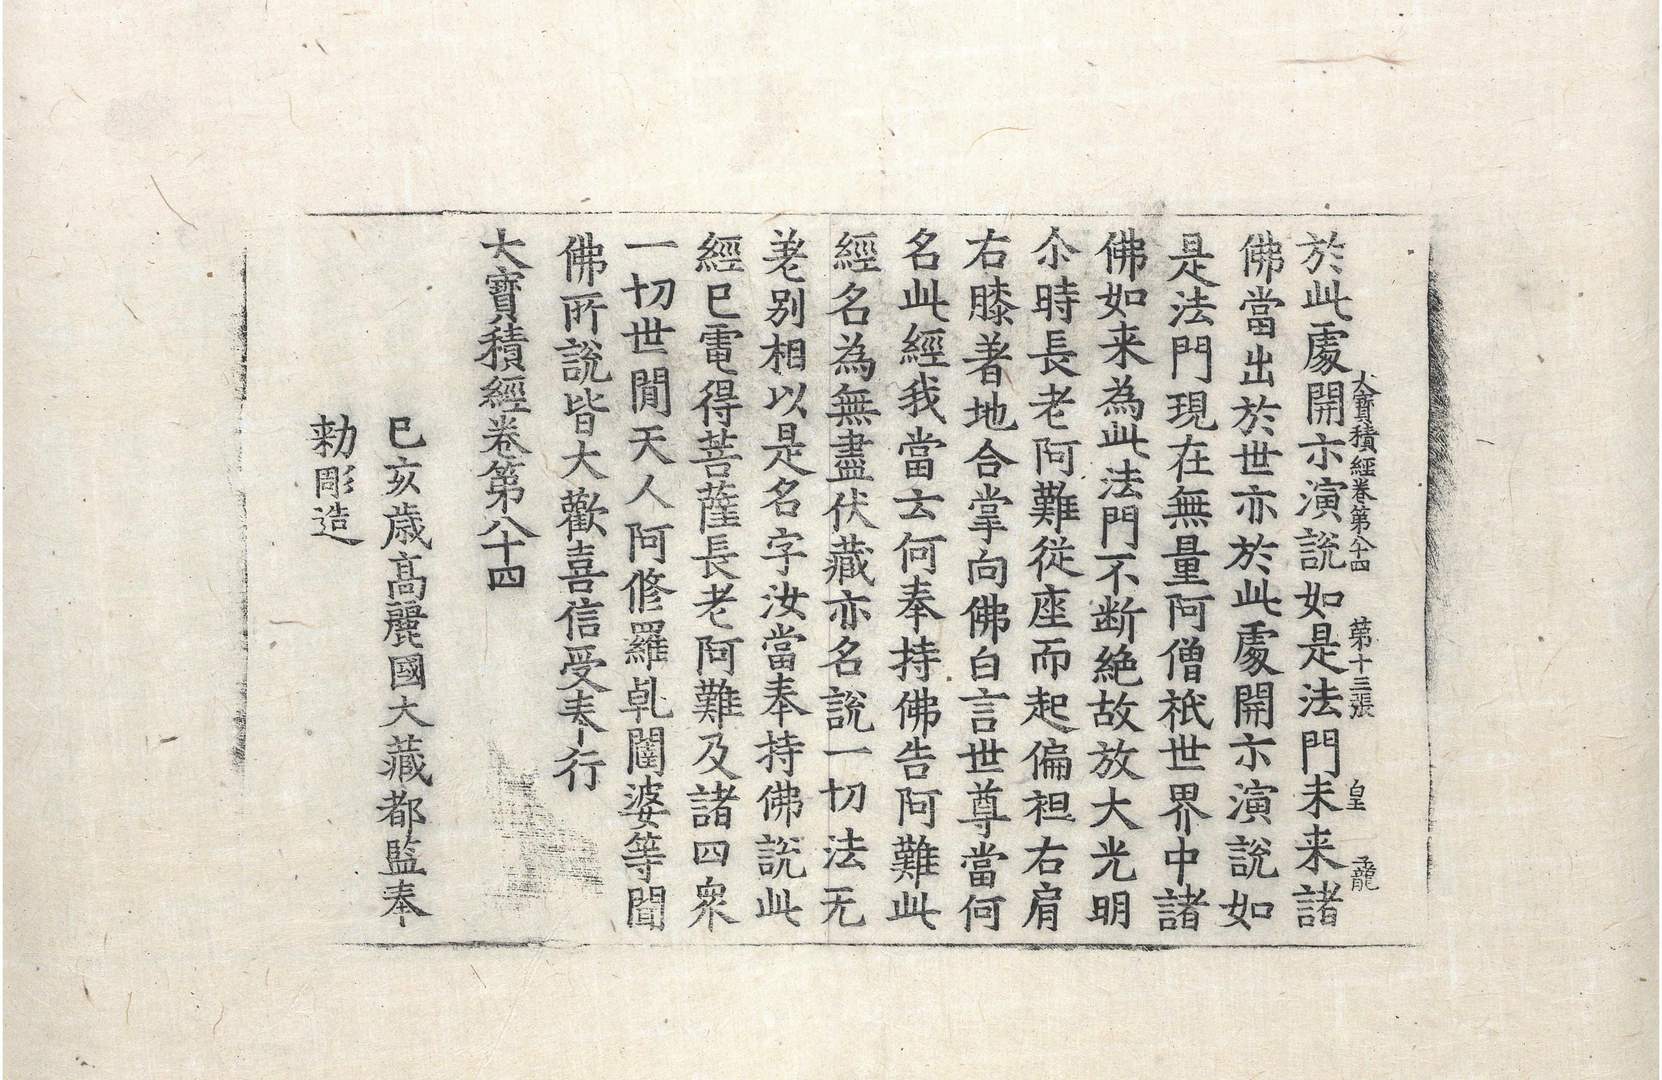 大寶積經卷第八十四 第十三張 皇 孟龍
於此處開示演說如是法門未来諸
佛當出於世亦於此處開示演說如
是法門現在無量阿僧祇世界中諸
佛如来為此法門不断絕故放大光明
尒時長老阿難從座而起偏袒右肩
右膝著地合掌向佛白言世尊當何
名此經我當云何奉持佛告阿難此
經名為無盡伏藏亦名說一切法无
差別相以是名字汝當奉持佛說此
經已電得菩薩長老阿難及諸四衆
一切世閒天人阿修羅乹闥婆等聞
佛所說皆大歡喜信受奉行
大寶積經卷第八十四
己亥歲髙麗國大藏都監奉
勑彫造